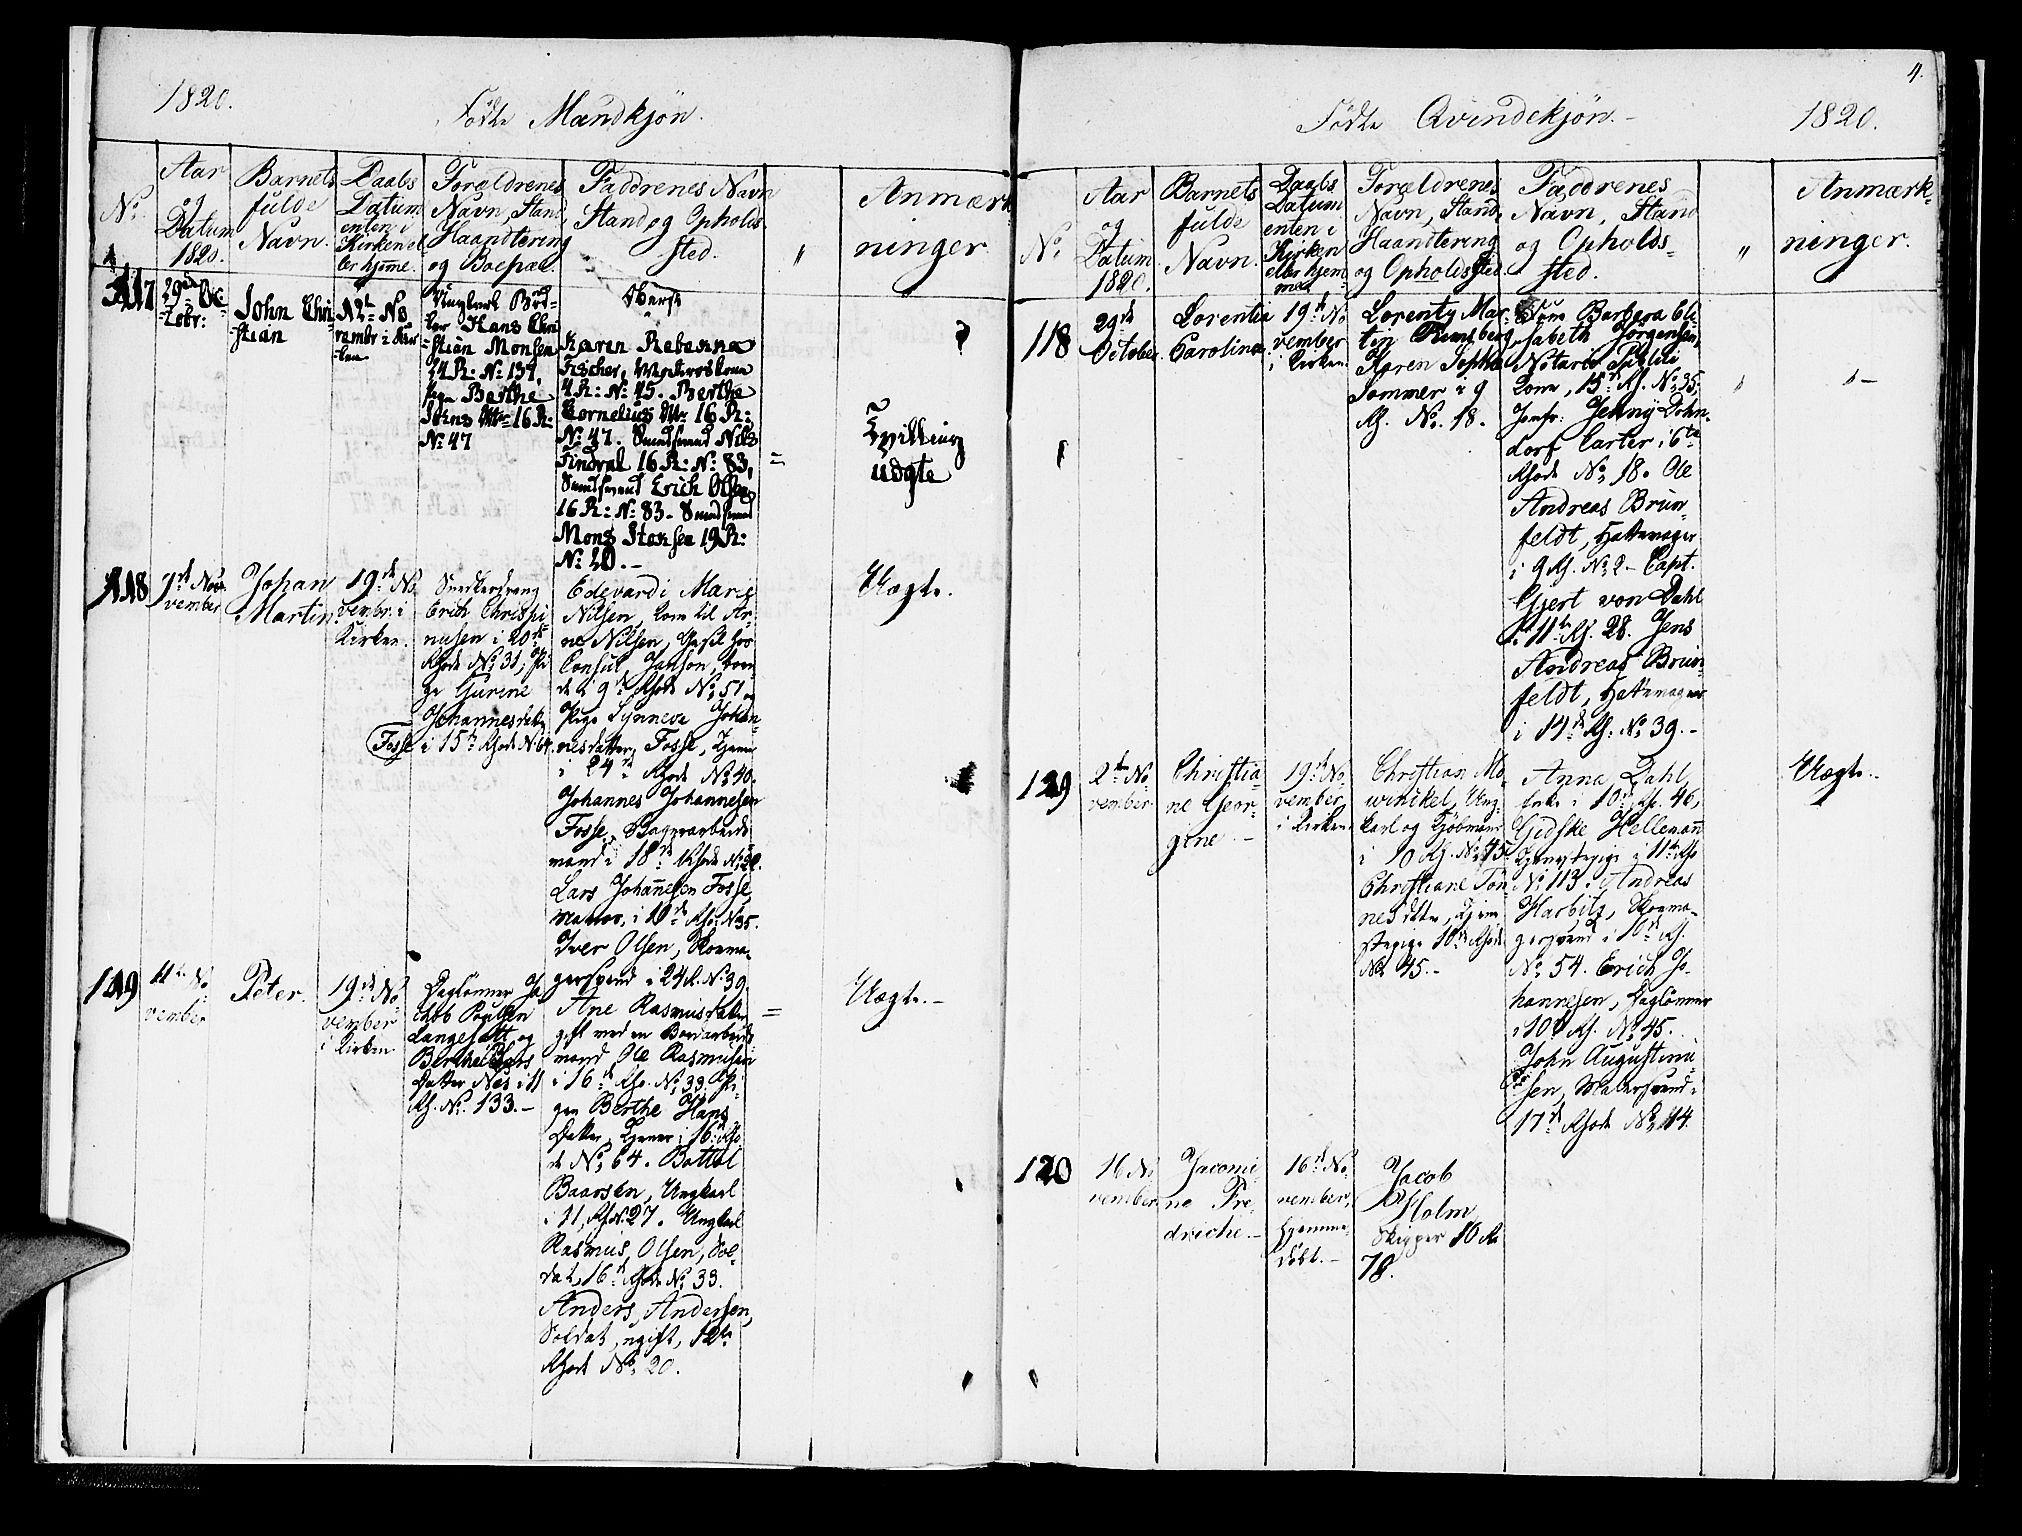 1820.
Födte Mandkjön.
No.
Aar
og
Datum
1820.
Barnets
fulde
Navn.
Daabs
Datum
enten i
Kirken el
ler hjeme.
Forældrenes
Navn, Stand
Haandtering
og Boepæl.
Faddrenes Navn
Stand og Opholds
sted.
"
Anmærk
ninger.
117
29de Oc
tobr:
John Chri
stian
12te No
vembr i Kir
ken
Hans Chri
stian Monsen
24 R: No 134,
Pige Berthe
16 R:
No 47
Karen Rebekka
Fischer,
4 R: No 45. Berthe
Cornelius 16 R:
No 47. Nils
Findral 16 R: No 83,
Erich Olsen
16 R: No 83.
Mons 19 R:
No 20.
=
Tvilling
uægte
118
7de No
vember
Johan
Martin
19de No
vembr. i
Kirken.
Erich Christi
nusen i 20de
Rhode No 31, Pi
ge Gurine
Johannesdatter
Fosse i 15de Rhode No 64.
Edevardi Marie
Nilsen, Kone til Ar
ne Nilsen, hos
Consul Janson,
i 9de Rhode No 51 og
Pige Synneve Johan
nesdatter Fosse, tjener
i 24de Rhode No 40.
Johannes Johannesen
Fosse,
mand i 18de Rhode
Lars Johanesen Fosse
i 19de Rho. No 35.
Iver Olsen, Skoma
gersvend i 24 R. No 39.
Uægte.
119
11te No
vember
Peter.
19de No
vember
i Kirken
Daglönner Ja
chob Poulsen
Langesætt og
Berthe
Datter Næs i 11
Rh. No. 133.
Ane Rasmusdatter
gift med en
mand Ole Rasmusen
i 16de Rho. No 33. Pi
gen Berthe Hans
Datter, tjener i 16. Rho
de No 64. Bottol
Baarsen, Ungkarl
i 11 Rh. No 27. Ungkarl
Rasmus Olsen, Sol
dat, 16de Rhode No 33.
Anders Andersen,
Soldat, ugift, 12te
Rhode No 20.
=
Uægte.
4.
Födte Qvindekjön.
1820.
No.
Aar
og
Datum
1820.
Barnets
fulde
Navn.
Daabs
Datum
enten i
Kirken
eller hjem
me
Forældrenes
Navn, Stand
Haandtering
og Opholdssted.
Faddrenes
Navn, Stand
og Opholds
sted.
"
Anmærk
ninger.
118
29de
October
Lorentia
Carolina
19de No
vember
i Kirken.
Lorenty Mar
tin
Karen Sophia
Sommer i 9
Rh. No. 18.
Barbara Eli
sabeth Jörgensen,
Notarius Publici
Kone, 15de Rh. No 35,
Jomfr: Jenny Dohn
dorf Carter i 6te
Rhode No 18. Ole
Andreas Brun
feldt, Hattemager
i 9 Rh. No 2. Capt.
Gjert von Dahl
i 11te Rh. 28. Jens
Andreas Brun
feldt, Hattemager
i 14de Rh. No 39.
119
2den No
vember
Christia
ne Geor
gine.
19de No
vember
i Kirken
Christian Mo
winkel, Ung
karl og Kjöbmand
i 10 Rh. No 45
Christiane Tön
nes datter, Tjene
stepige 10de Rhode
No 45.
Anna Dahl
Enke i 10de Rh. 46,
Gidske Hellemann
Tjenestepige i 11te Rh
No 113. Andreas
Harbitz, Skoma
gersvend i 10de Rh.
No 54. Erich Jo
hannesen, Daglönner
i 10de Rh. No 45.
John Augustinu
sen, Malersvend i
17de Rhode No 114.
Uægte.
120
16 No
vember
Jacomi
ne Fre
driche.
16de No
vember,
hjemme
döbt.
Jacob
Holm
Skipper 10 R
78.